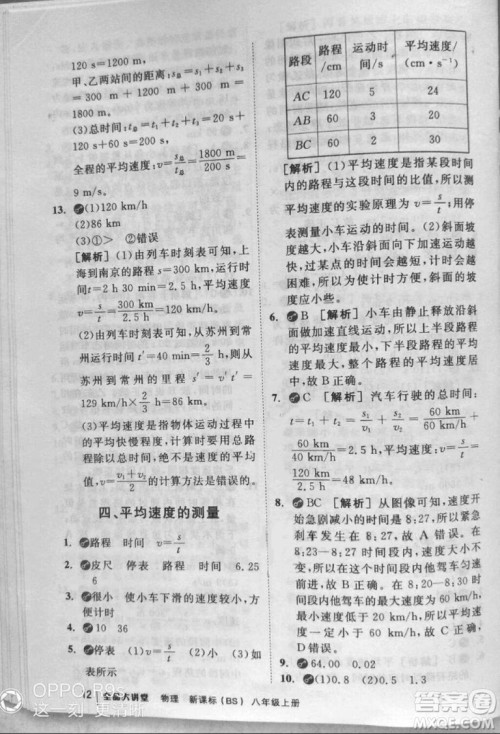 120 s=1200 m,
甲、乙两站间的距离:s总=s₁+s₂+s₃
=300 m+300 m+1200 m=
1800 m。
(3)总时间:t总=t₁+t₂+t₃=20 s+
120 s+60 s=200 s,
全程的平均速度:v=s总/t总=1800 m/200 s=
9 m/s。
13. (1)120 km/h
(2)86 km
(3)①> ②错误
[解析](1)由列车时刻表可知,上
海到南京的路程 s=300 km,运行时
间t=2 h 30 min=2.5 h,平均速度
v=s/t=300 km/2.5 h=120 km/h。
(2)由列车时刻表可知,从苏州到常
州运行时间 t′=40 min=2/3 h,则从
苏州到常州的里程 s′=v′t′=
129 km/h×2/3 h=86 km。
(3)平均速度是指物体运动过程中
一段时间的总路程与这段时间的总
时间之比,绝不是速度的平均值,因
此v=(v₁+v₂)/2的计算方法是错误的。
四、平均速度的测量
1. 路程 时间 v=s/t
2. 皮尺 停表 路程 时间 6.25
6
3. 很小 使小车下滑的速度较小,方
便计时
4. 10 36
5. (1)停表 (2)v=s/t (3)小 (4)如
表所示
路段 路程/cm 运动时间/s 平均速度/(cm·s⁻¹)
AC 120 5 24
AB 60 3 20
BC 60 2 30
[解析](1)平均速度是指某段时间
内的路程与这段时间的比值,所以
平均速度的实验原理为v=s/t;用停
表测量小车运动的时间。(2)斜面
坡度越大,小车沿斜面向下运动越
快,过某点的时间会越短,计时会越
困难,所以为使计时方便,斜面的坡
度应小些。
6. B [解析]小车由静止释放沿斜面
做加速直线运动,所以上半段路程
的平均速度最小,下半段路程的平均
速度最大,整个路程的平均速度居
中,故 B 正确。
7. C [解析]汽车行驶的总时间:
t=t₁+t₂=s₁/v₁+s₂/v₂=60 km/60 km/h+
60 km/40 km/h=2.5 h,平均速度:v=s/t=
120 km/2.5 h=48 km/h。
8. BC [解析]从图像可知,速度开
始急剧减小的时间是 8:27,所以紧急
刹车发生在 8:27,故 A 错误。在
8:23—8:27 内汽车在做匀速直线
前进,故 B 正确。在 8:20—8:30 时
间内他驾车的最大速度是 60 km/h,
最小速度是 0 km/h,故 C 正确,
D 错误。
9. 64.00 0.02
10. (1)0.2 (2)0.8 0.5 1.3
12 全品大讲堂 物理 新课标(BS) 八年级上册
OPPO R9s
这一刻 更清晰